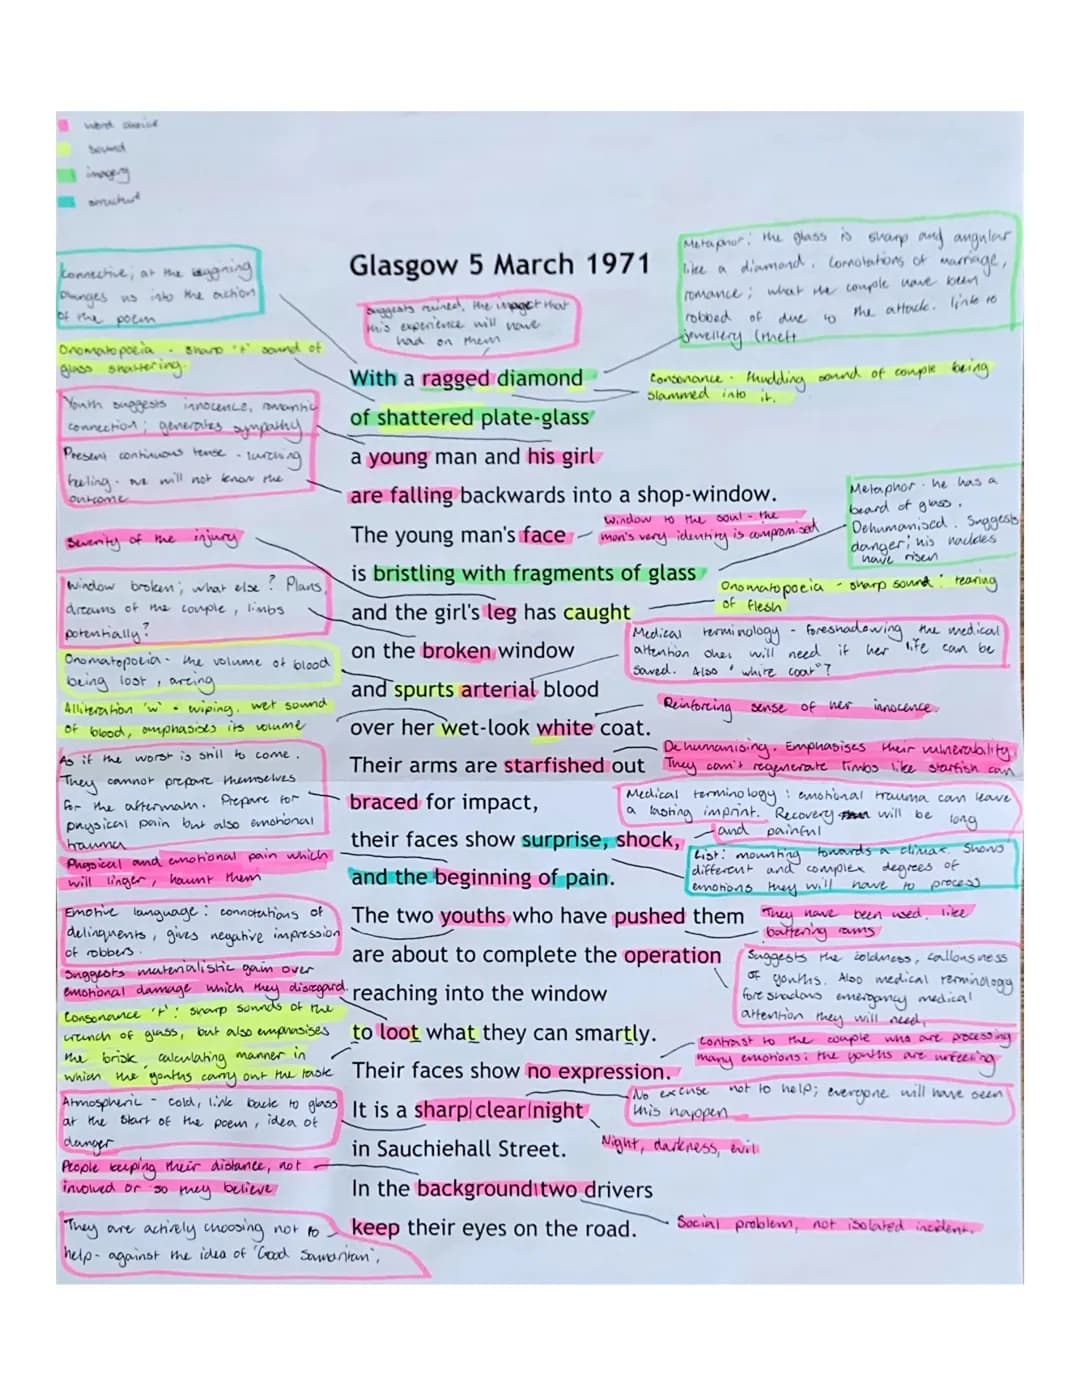 word choice
sound
imagery
structure
Connective; at the beggining
plunges us into the action
of the poem
Glasgow 5 March 1971
Metaphor: the glass is sharp and angular
like a diamond. Connotations of marriage,
romance; what the couple have been
robbed of due to the attack. link to
jewellery theft
suggests ruined, the impact that
this experience will have
had on them
Onomatopoeia - sharp 't' sound of
glass shattering.
With a ragged diamond
Consonance - thudding sound of couple being
slammed into it.
Youth suggests innocence, romantic
connection; generates sympathy
of shattered plate-glass
Present continuous tense - lurching
feeling - we will not know the
outcome
a young man and his girl
are falling backwards into a shop-window.
Metaphor - he has a
beard of glass.
Dehumanised. Suggests
danger; his hackles
have risen
Severity of the injury
The young man's face
Window to the soul - the
man's very identity is compromised
is bristling with fragments of glass
Onomatopoeia - sharp sound: tearing
of flesh
Window broken; what else? Plans,
dreams of the couple, limbs
potentially?
and the girl's leg has caught
Medical terminology - foreshadowing the medical
attention she will need if her life can be
saved. Also 'white coat'?
on the broken window
Onomatopoeia - the volume of blood
being lost, arcing
and spurts arterial blood
Alliteration 'w' - wiping, wet sound
of blood, emphasises its volume
over her wet-look white coat.
Reinforcing sense of her innocence.
As if the worst is still to come.
They cannot prepare themselves
for the aftermath. Prepare for
physical pain but also emotional
trauma
Their arms are starfished out
Dehumanising. Emphasises their vulnerability.
They can't regenerate limbs like starfish can
braced for impact,
Medical terminology: emotional trauma can leave
a lasting imprint. Recovery will be long
and painful
their faces show surprise, shock,
List: mounting towards a climax. Shows
different and complex degrees of
emotions they will have to process
Physical and emotional pain which
will linger, haunt them
and the beginning of pain.
Emotive language: connotations of
delinquents, gives negative impression
of robbers.
The two youths who have pushed them
They have been used like
battering rams
are about to complete the operation
Suggests the coldness, callousness
of youths. Also medical terminology
foreshadows emergency medical
attention they will need.
Suggests materialistic gain over
emotional damage which they disregard.
reaching into the window
Consonance 't': sharp sounds of the
crunch of glass, but also emphasises
the brisk, calculating manner in
which the youths carry out the task
to loot what they can smartly.
Contrast to the couple who are processing
many emotions: the youths are unfeeling
Their faces show no expression.
No excuse not to help; everyone will have seen
this happen
Atmospheric - cold, link back to glass
at the start of the poem, idea of
danger
It is a sharp clear night
Night, darkness, evil
in Sauchiehall Street.
People keeping their distance, not
involved or so they believe
In the background two drivers
Social problem, not isolated incident.
They are actively choosing not to
help - against the idea of 'Good Samaritan'.
keep their eyes on the road.